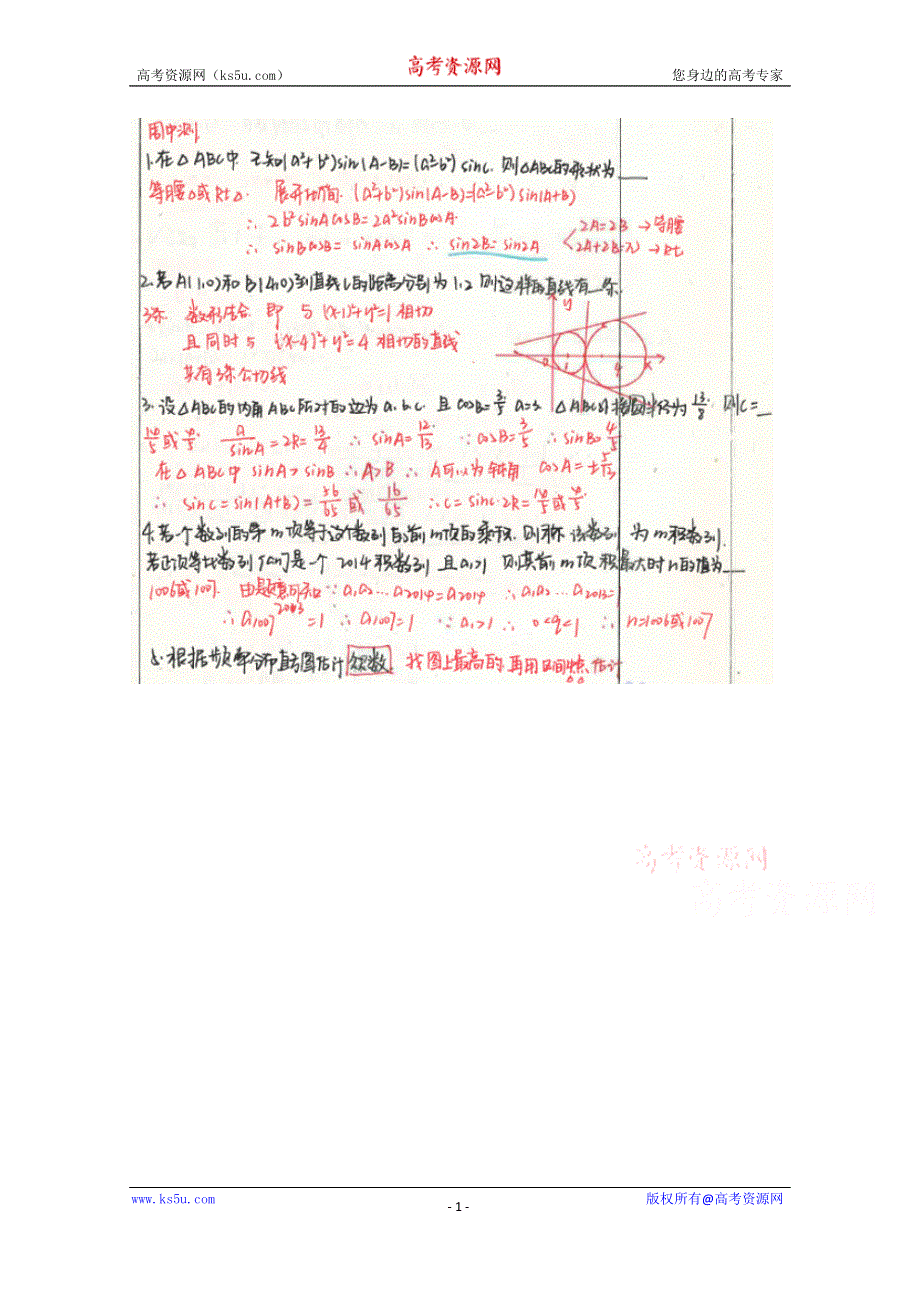 高考资源网（ks5u.com） 高考资源网 您身边的高考专家
周中测
1.在△ABC中 已知(a²+b²)sin(A-B)=(a²-b²)sinC. 则△ABC的形状为___
等腰△或Rt△. 展开切简. (a²+b²)sin(A-B)=(a²-b²)sin(A+B)
∴ 2b²sinAcosB=2a²sinBcosA.
∴ sinBcosB=sinAcosA ∴ sin2B=sin2A
2A=2B→等腰
2A+2B=π→Rt
2.若A(1,0)和B(4,0)到直线l的距离分别为1.2 则这样的直线有__条.
3条 数形结合 即 与 (x-1)²+y²=1 相切
且同时与 (x-4)²+y²=4 相切的直线
共有3条公切线
y
0 1 4 x
3.设△ABC的内角ABC所对的边为a.b.c. 且cosB=3/5 a=3 △ABC的 圆半径为13/8. 则c=_
14/5或4/5. a/sinA=2R=13/4 ∴ sinA=12/13 ∵cosB=3/5 ∴sinB=4/5
在△ABC中 sinA>sinB ∴A>B ∴ A可以为钝角 cosA=±5/13
∴ sinC=sin(A+B)=56/65或16/65 ∴c=sinC·2R=14/5或4/5.
4.若一个数列的第m项等于这个数列的前m项的乘积. 则称该数列为m积数列.
若正项等比数列{an}是一个2014积数列 且a₁>1 则其前m项积最大时n的值为__
1006或1007. 由题意可知 ∵a₁a₂…a₂₀₁₄=a₂₀₁₄ ∴a₁a₂…a₂₀₁₃=1
∴a₁₀₀₇²⁰¹³=1 ∴a₁₀₀₇=1 ∵a₁>1 ∴ 0<q<1 ∴ n=1006或1007
5.根据频率分布直方图估计众数. 找图上最高的 再用区间 估计
高考资源网
高考资源网
www.ks5u.com - 1 - 版权所有@高考资源网